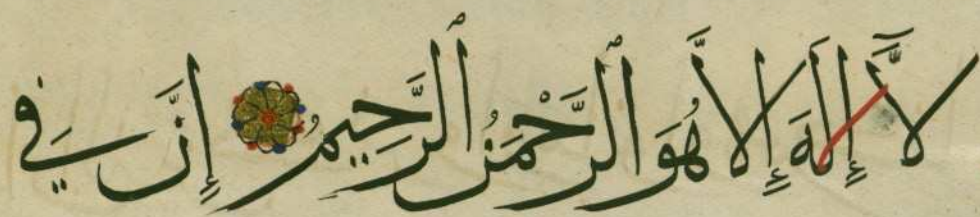 لَّآ إِلَٰهَ إِلَّا هُوَ الرَّحْمَنُ الرَّحِيمُ إِنَّ فِي